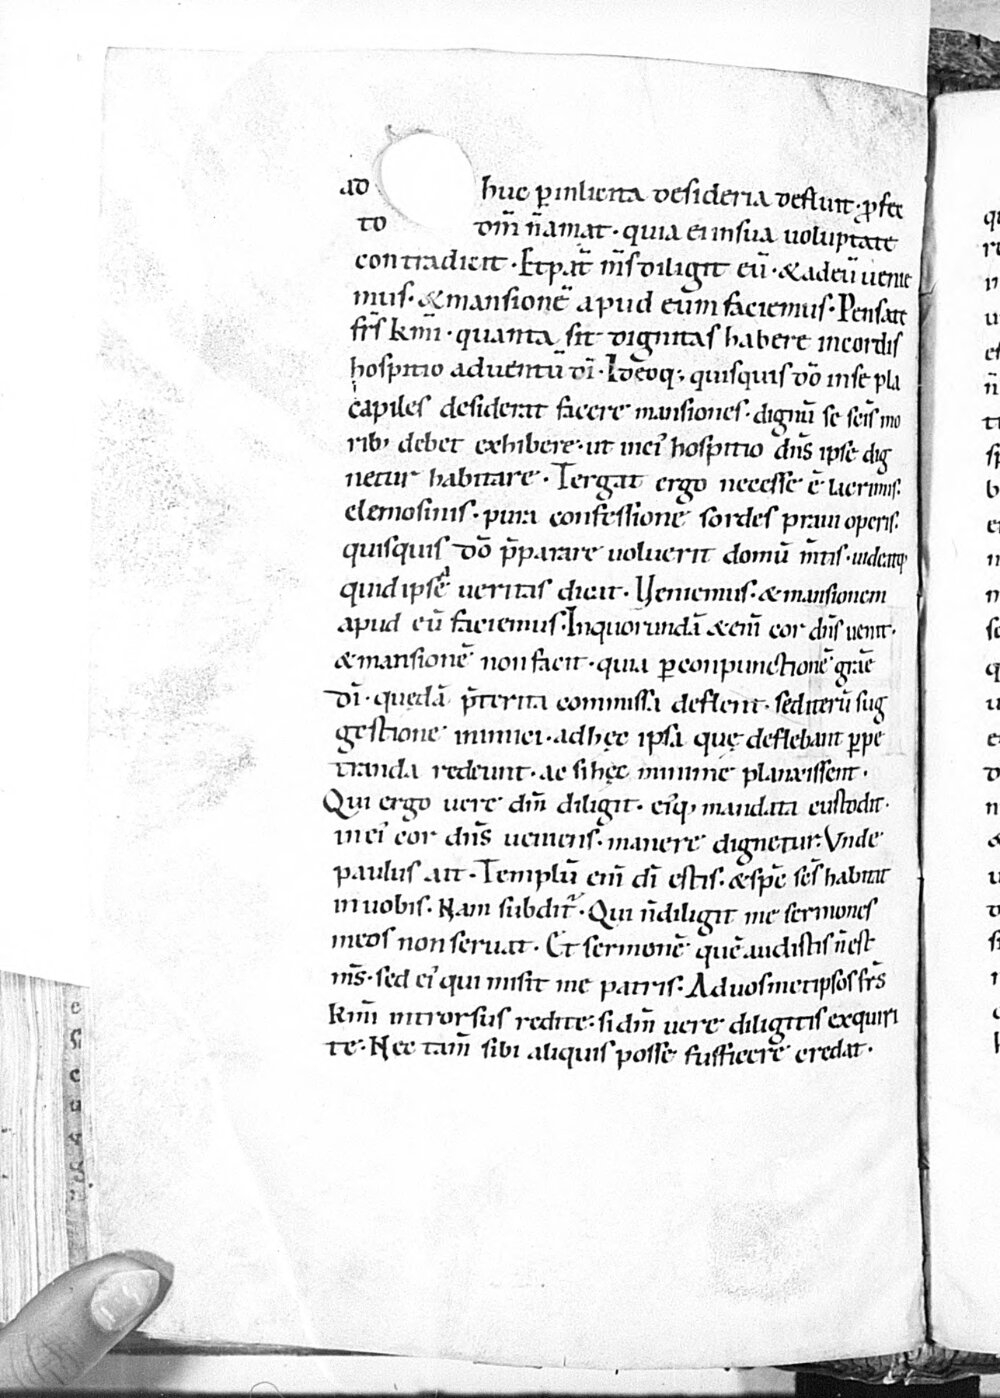 ad huc ꝑ inlicita desideria defluit· ꝓfec
to dm̄ n̄ amat· quia ei in sua uoluptate
contradicit· Et pat̄ ms̄ diligit eū· & ad eū uenie
mus· & mansionē apud eum faciemus· Pensate
frs̄ kmī· quanta sit dignitas habere in cordis
hospitio aduentū dī· Ideoq; quisquis dō in se pla
capiles desiderat facere mansiones· dignū se scīs mo
rib; debet exhibere· ut in ei' hospitio dn̄s ipse dig
netur habitare· Tergat ergo necesse ē lacrimis·
elemosinis· pura confessione sordes praui operis·
quisquis dō p̄parare uoluerit domū m̄tis· uideatq;
quid ipsa ueritas dicit· Veniemus· & mansionem
apud eū faciemus· In quorundā & enī cor dn̄s uenit·
& mansionē non facit· quia ꝑ conpunctionē grāe
dī· quędā p̄terita commissa deflent· sed iterū sug
gestione inimici· ad hęc ipsa quę deflebant ꝑpe
tranda redeunt· ac si hęc minime planxissent·
Qui ergo uere dm̄ diligit· ei'q; mandata custodit·
in ei' cor dn̄s ueniens· manere dignetur· Vnde
paulus ait· Templū enī dī estis· & spc̄ scs̄ habitat
in uobis· Nam subdit'· Qui n̄ diligit me sermones
meos non seruat· Et sermonē quē audistis n̄ est
ms̄· sed ei' qui misit me patris· Ad uosmetipsos frs̄
kmī introrsus redite· si dm̄ uere diligitis exquiri
te· Nec tam̄ sibi aliquis posse sufficere credat·